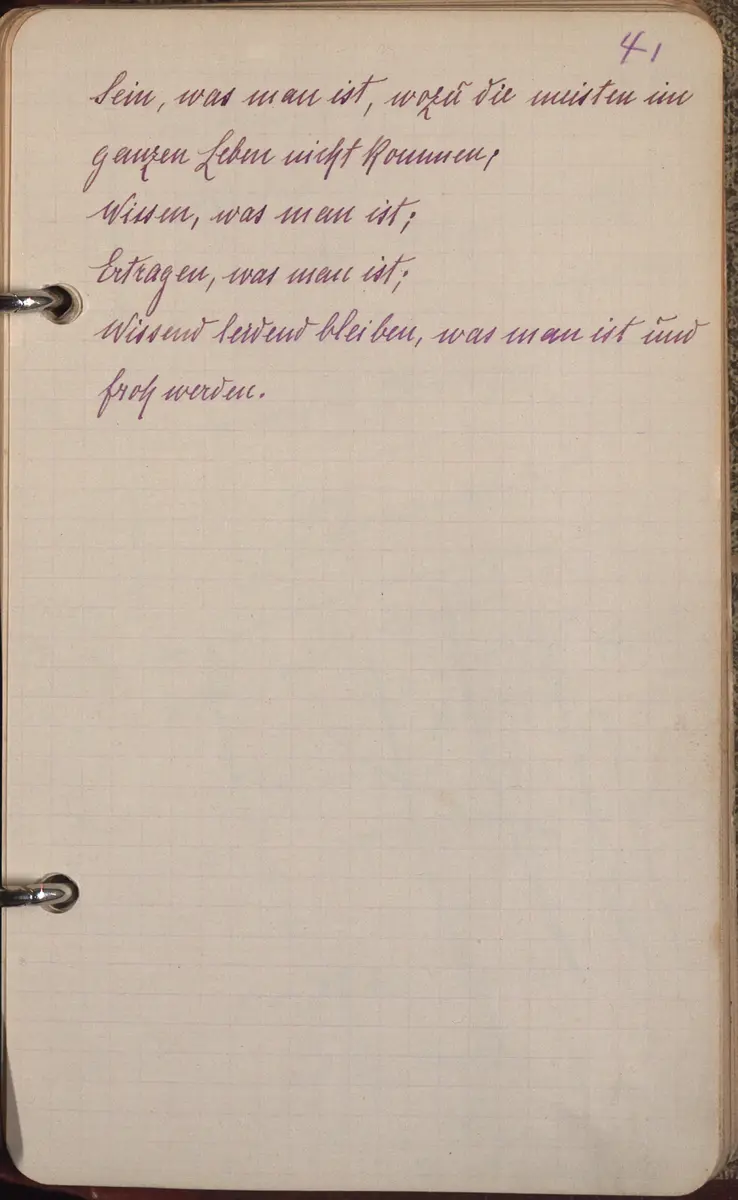 41
Sein, was man ist, wozu die meisten im
ganzen Leben nicht kommen;
Wissen, was man ist;
Ertragen, was man ist;
Wissend leidend bleiben, was man ist und
froh werden.